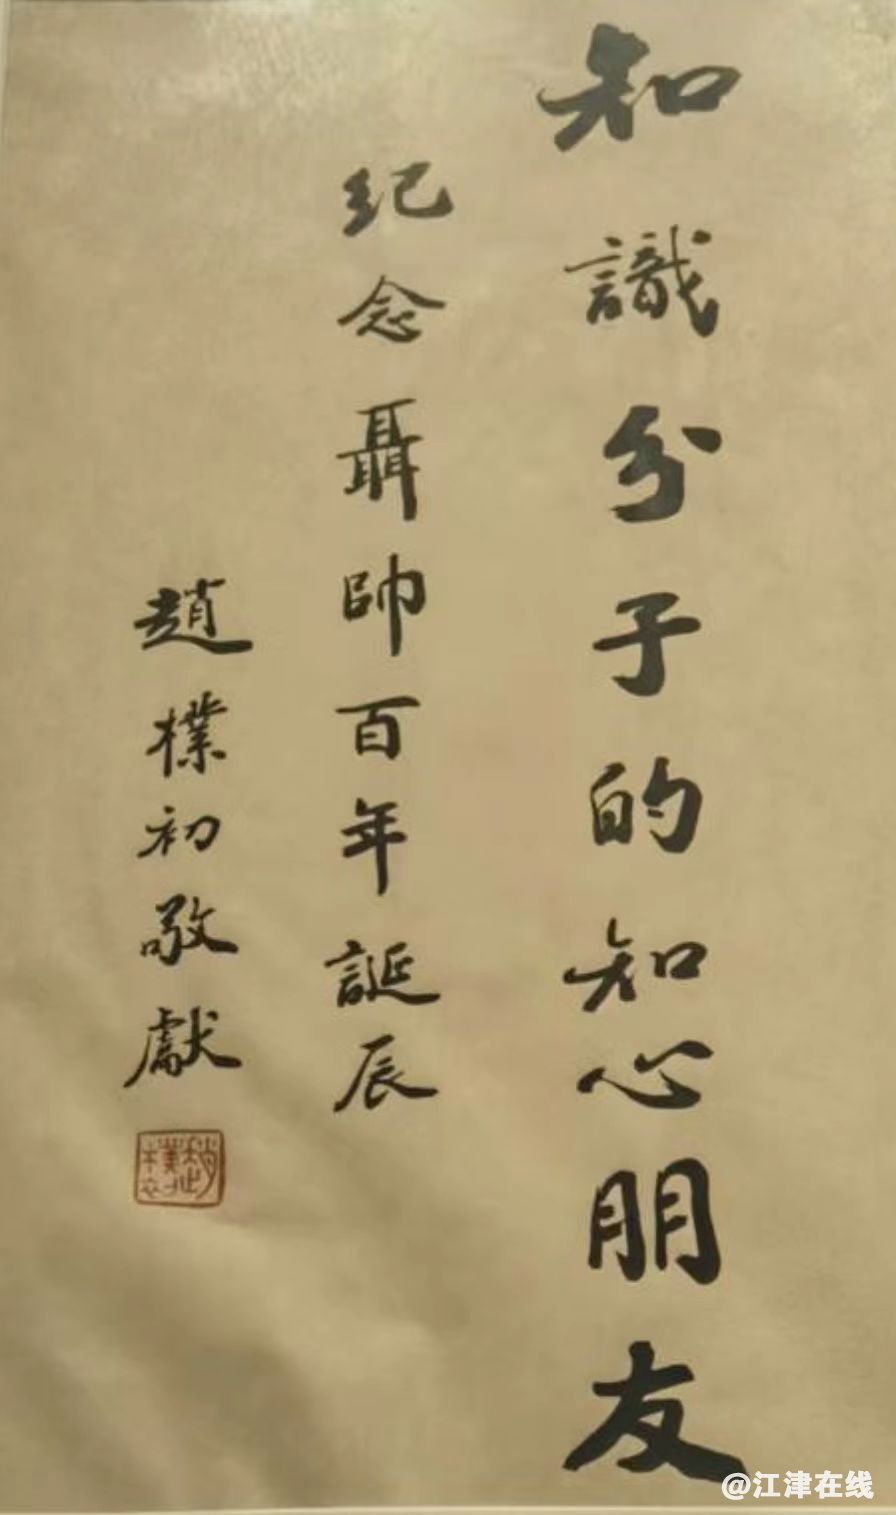 知識分子的知心朋友
紀念聶帥百年誕辰
趙樸初敬獻
@江津在线